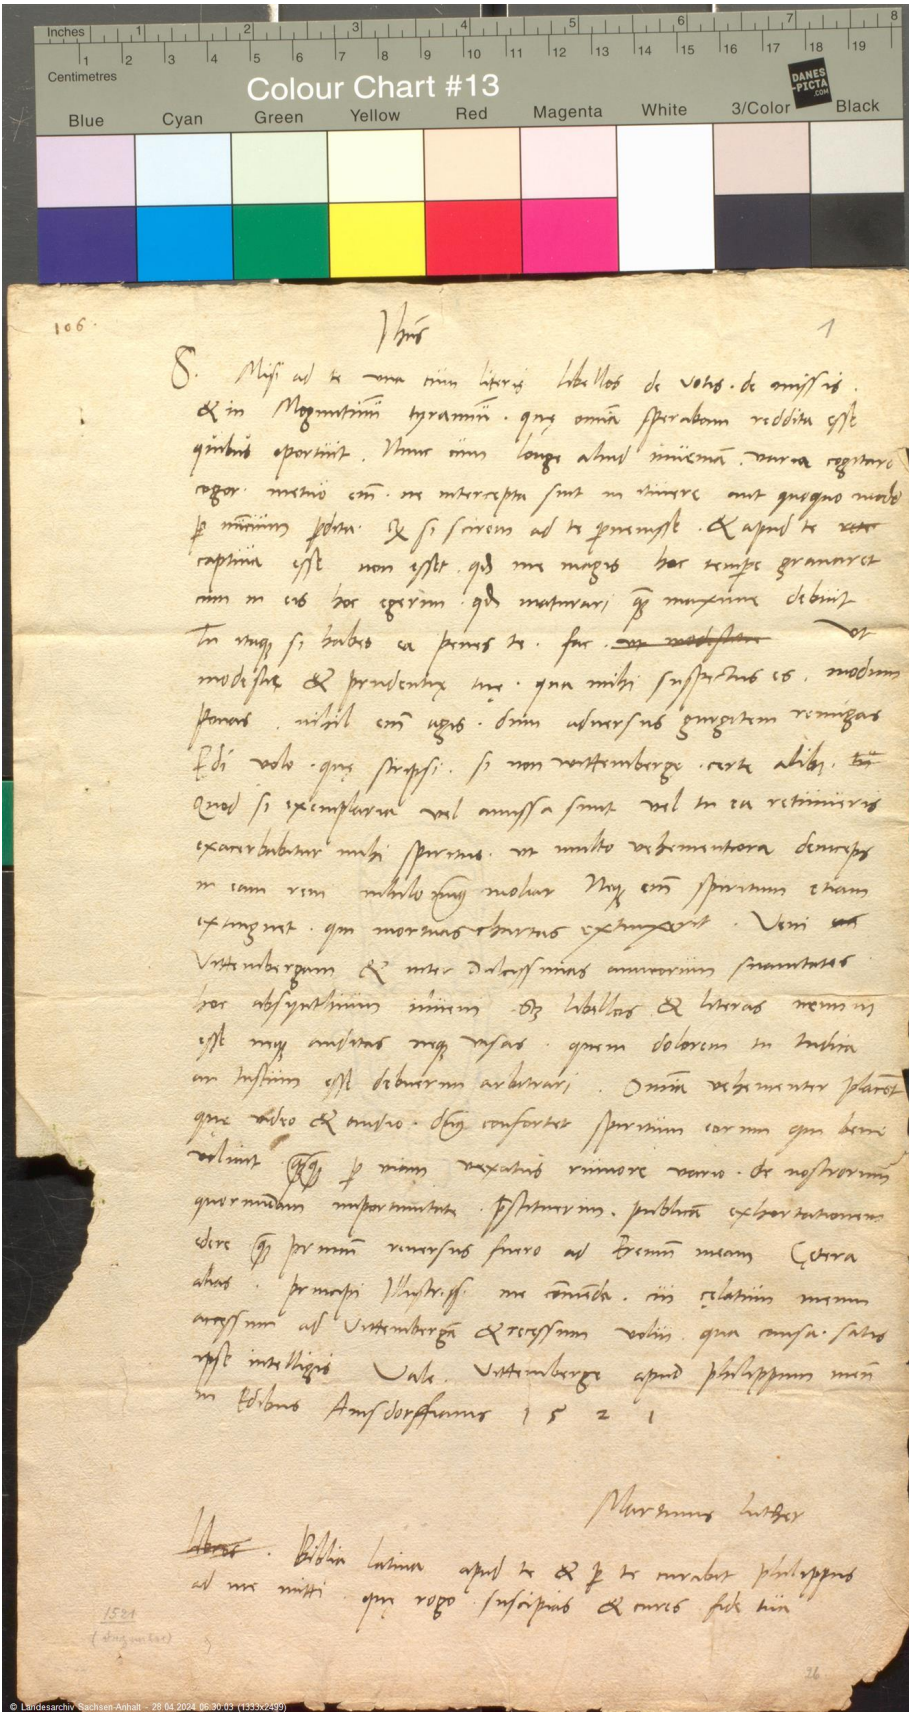 Inches 1 2 3 4 5 6 7 8
1 2 3 4 5 6 7 8 9 10 11 12 13 14 15 16 17 18 19
Centimetres
Colour Chart #13
DANES
-PICTA
.COM
Blue Cyan Green Yellow Red Magenta White 3/Color Black
106. Jhūs 1
S. Misi ad te una cum literis libellos de votis. de missis.
& in Mogūntinū tyrannū. quę omīa sperabam reddita esse
quibus oportuit. Nunc cum longe aliud inveniā. varia cogitare
cogor. metuo em̄. ne intercepta sint in itinere aut quoquo modo
ꝑ nuncium ꝑdita. si scirem ad te ꝑvenisse. & apud te
captiva esse non esset qđ me magis hoc tempe gravaret
cum in eis hoc egerim qđ maturari maxime debuit
Tu itaqꝫ si habes ea penes te. fac. ut modestiae Ut
modestię & prudentię tuę. qua mihi suspectus es. modum
ponas. nihil em̄ agis. dum adversus gurgitem remigas
Edi volo. quę scripsi. si non wittemberge. certe alibi.
Quod si exemplaria vel amissa sunt vel tu ea retinueris
exacerbabitur mihi spiritus. ut multo vehementiora deinceps
in eam rem nihilominus moliar Neqꝫ em̄ spiritum etiam
extinguet. qui mortuas chartas extinxerit. Veni
Vittembergam & inter dulcissimas amicorum suavitates
hoc absynthium inveni libellos & literas nemini
esse neqꝫ auditas neqꝫ visas. quem dolorem tu Iudica
an Iustum esse debuerim arbitrari. Omnīa vehementer placēt
quę video & audio. dn̄s confortet spiritum eorum qui bene
volunt. ꝑ viam vexatus rumore vario. de nostrorum
quorundam importunitate. prestituerim. publicā exhortationem
edere primum reversus fuero ad Eremū meam Cętera
alias. principi Illustriss. me cōmenda. cui cęlatum meum
accessum ad Vittembergā & recessum volui. qua causa. satis
ipse intelligis Vale. Vittemberge apud philippum meū
in Edibus Amsdorffianis 1521
Martinus Luther
libros. Biblia latina apud te & ꝑ te curabit philippus
ad me mitti. quę rogo suscipias & cures fide tua
1521
26
© Landesarchiv Sachsen-Anhalt - 28.04.2024 06:30:03 (1333x2499)